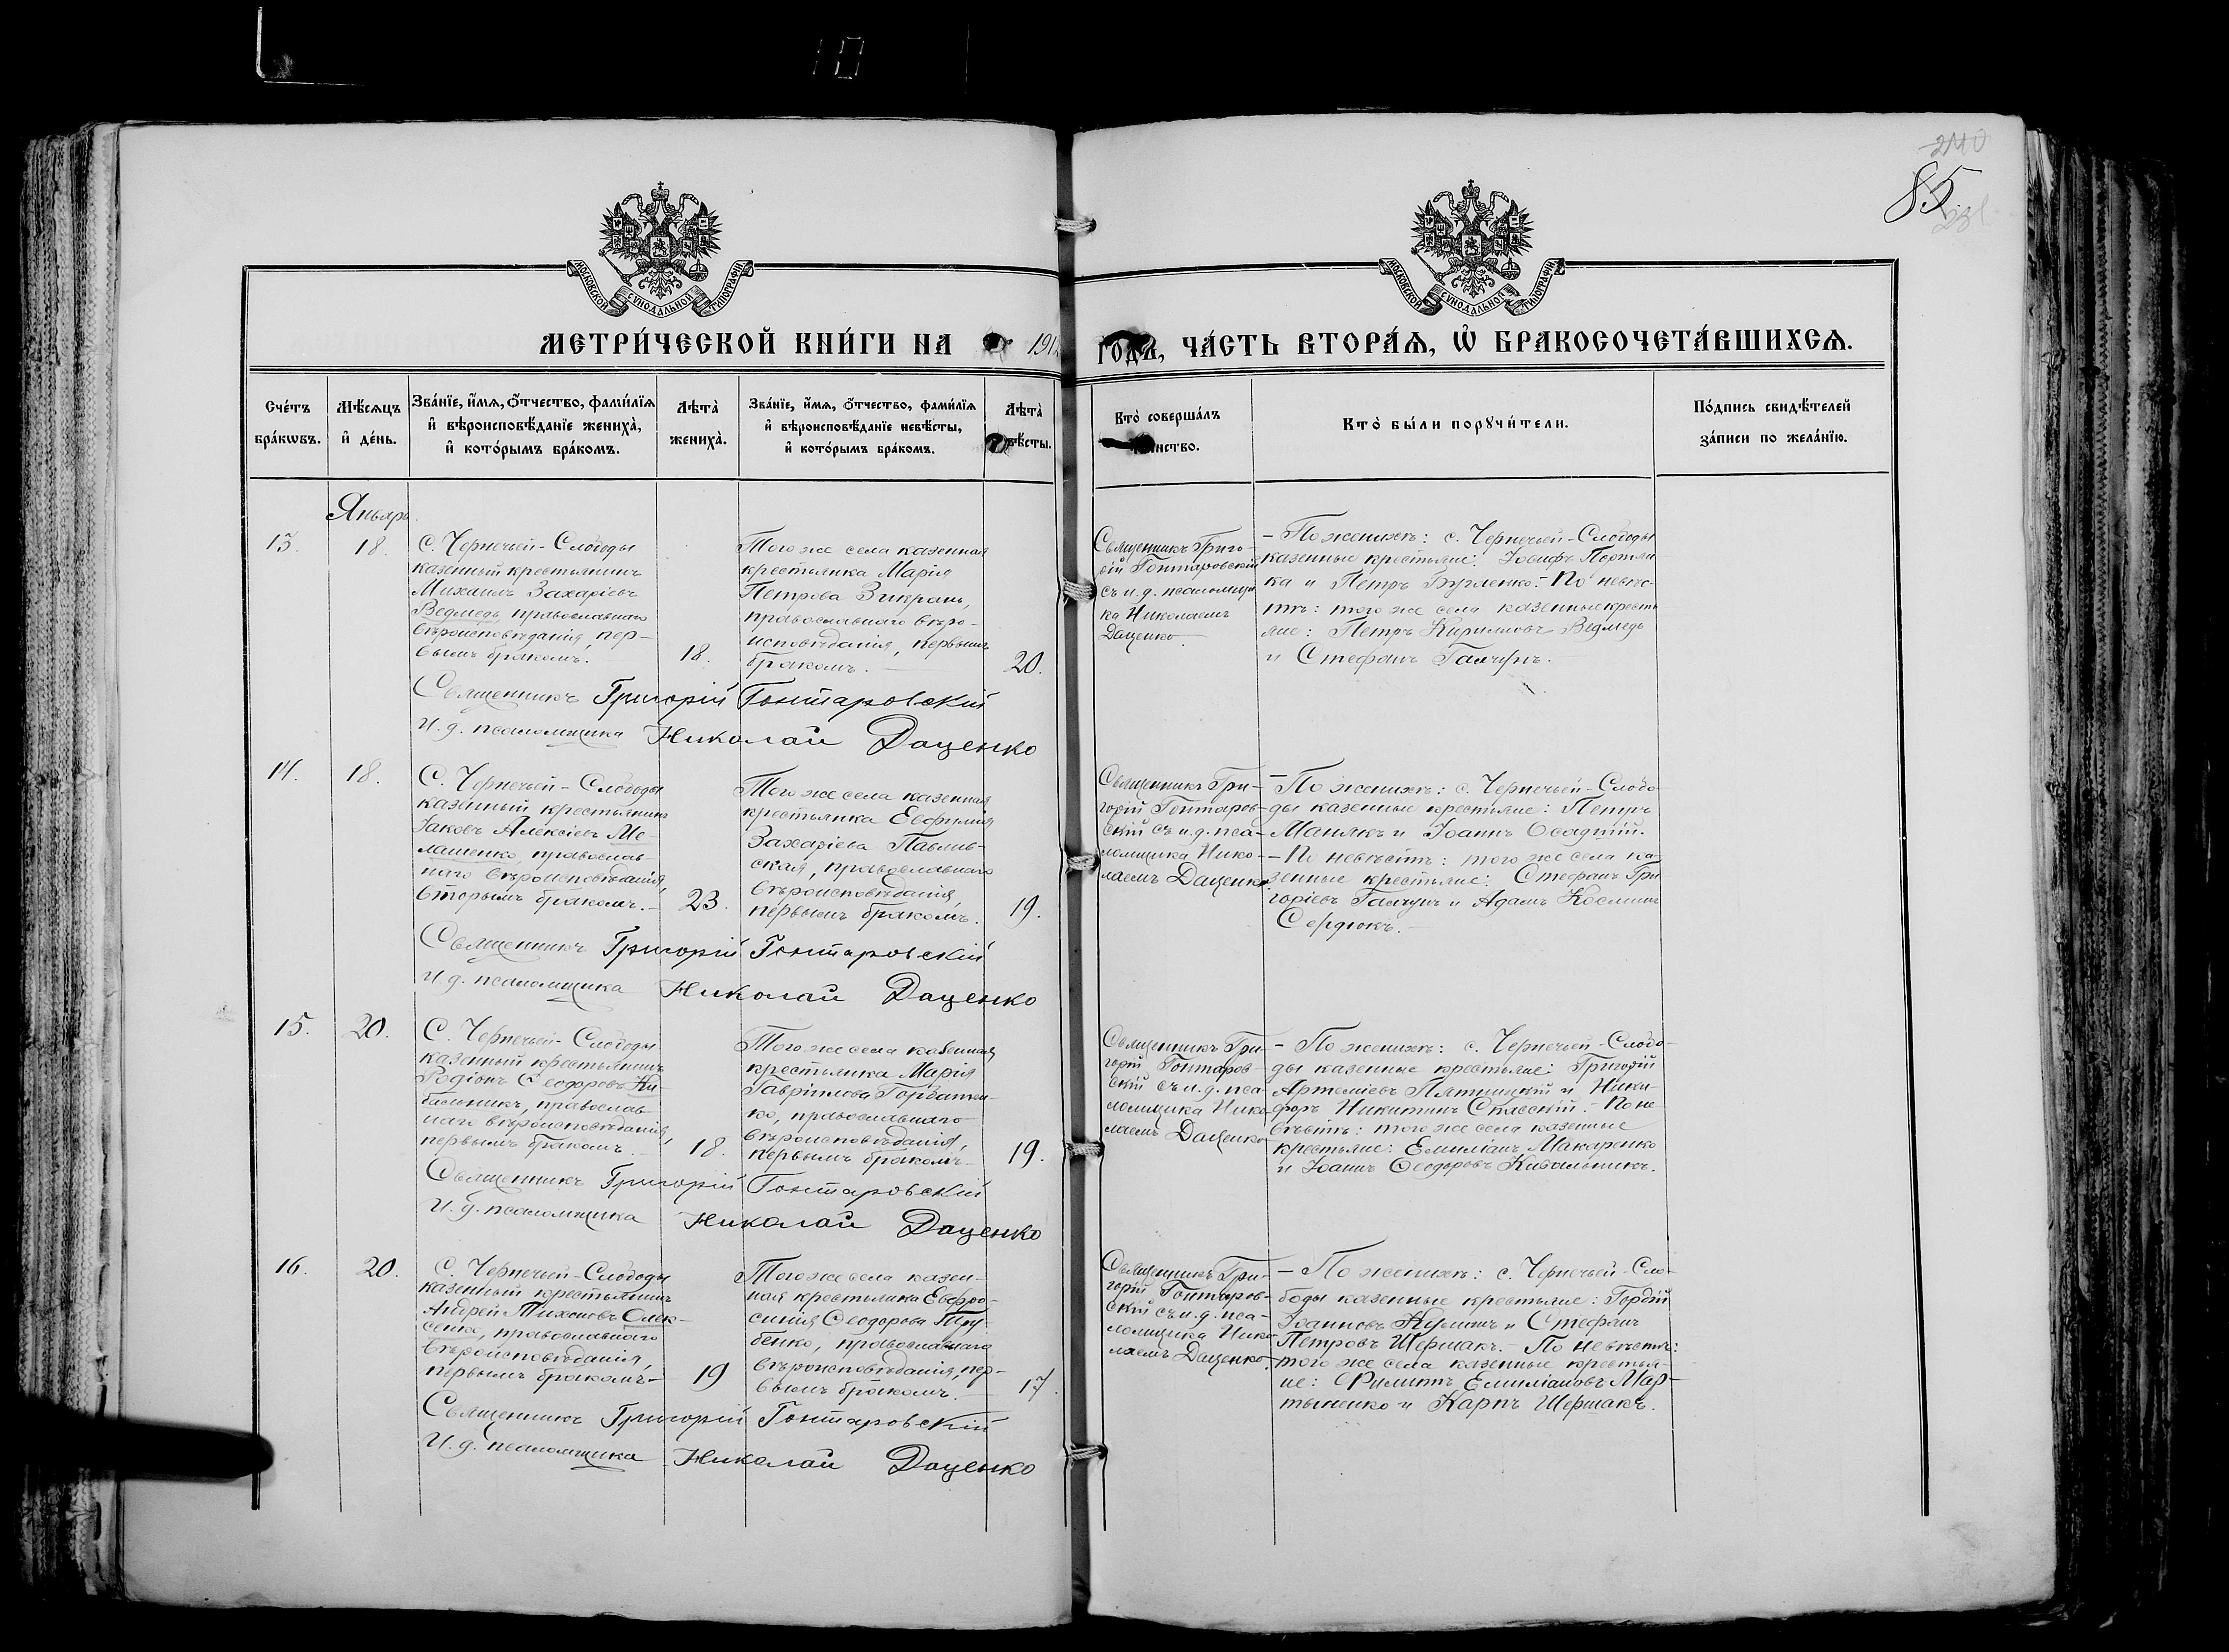 10
240
85.
МОСКОВСКОЙ СѴНОДАЛЬНОЙ ТИПОГРАФІИ
МОСКОВСКОЙ СѴНОДАЛЬНОЙ ТИПОГРАФІИ
МЕТРИ́ЧЕСКОЙ КНИ́ГИ НА 191
ГОДЪ, ЧА́СТЬ ВТОРА́Ѧ, Ѡ҆ БРАКОСОЧЕТА́ВШИХСѦ.
Сче́тъ
бра́кѡвъ.
Мѣ́сѧцъ
и҆ де́нь.
Зва́нїе, и҆́мѧ, о҆́тчество, фами́лїѧ
и҆ вѣроисповѣ́данїе жениха̀,
и҆ кото́рымъ бра́комъ.
Лѣта̀
жениха̀.
Зва́нїе, и҆́мѧ, о҆́тчество, фами́лїѧ
и҆ вѣроисповѣ́данїе невѣ́сты,
и҆ кото́рымъ бра́комъ.
Лѣта̀
вѣ́сты.
Кто̀ соверша́лъ
инство.
Кто̀ бы́ли порꙋчи́тели.
По́дпись свидѣ́телей
за́писи по жела́нїю.
Январь.
13.
18.
С. Чернечьей-Слободы
казенный крестьянинъ
Михаилъ Захаріевъ
Ведмедь, православнаго
вѣроисповѣданія, пер-
вымъ бракомъ.
18.
Того же села казенная
крестьянка Марія
Петрова
православнаго вѣро-
исповѣданія, первымъ
бракомъ. —
20.
Священникъ Григо-
рій Гонтаровскій
съ и. д. псаломщи-
ка Николаемъ
Даценко —
— По женихѣ: с. Чернечьей-Слободы
казенные крестьяне: Іосифъ
ка и Петръ Бурленко. — По невѣс-
тѣ: того же села казенные кресть-
яне: Петръ Кирилловъ Ведмедь
и Стефанъ Галчунъ. —
Священникъ Григорій Гонтаровскій
И. д. псаломщика Николай Даценко
14.
18.
С. Чернечьей-Слободы
казенный крестьянинъ
Іаковъ Алексіевъ Ме-
лашенко, православ-
наго вѣроисповѣданія,
вторымъ бракомъ. —
23.
Того же села казенная
крестьянка Евфимія
Захаріева Павлив-
ская, православнаго
вѣроисповѣданія,
первымъ бракомъ.
19.
Священникъ Гри-
горій Гонтаров-
скій съ и. д. пса-
ломщика Нико-
лаемъ Даценко.
— По женихѣ: с. Чернечьей-Слобо-
ды казенные крестьяне: Петръ
Манякъ и Іоаннъ Осадчій.
— По невѣстѣ: того же села ка-
зенные крестьяне: Стефанъ Гри-
горіевъ Галчунъ и Адамъ Косминъ
Сердюкъ. —
Священникъ Григорій Гонтаровскій
И. д. псаломщика Николай Даценко
15.
20.
С. Чернечьей-Слободы
казенный крестьянинъ
Родіонъ Ѳеодоровъ Ки-
бальникъ, православ-
наго вѣроисповѣданія,
первымъ бракомъ. —
18.
Того же села казенная
крестьянка Марія
Гавріилова Горбатен-
ко, православнаго
вѣроисповѣданія,
первымъ бракомъ —
19.
Священникъ Гри-
горій Гонтаров-
скій съ и. д. пса-
ломщика Нико-
лаемъ Даценко
— По женихѣ: с. Чернечьей-Слобо-
ды казенные крестьяне: Григорій
Артеміевъ Пятницкій и Ники-
форъ Никитинъ Спасскій. — По не-
вѣстѣ: того же села казенные
крестьяне: Емиліанъ Макаренко
и Іоаннъ Ѳеодоровъ Кибальникъ.
Священникъ Григорій Гонтаровскій
И. д. псаломщика Николай Даценко
16.
20.
С. Чернечьей-Слободы
казенный крестьянинъ
Андрей Тихоновъ Олек-
сенко, православнаго
вѣроисповѣданія,
первымъ бракомъ —
19
Того же села казен-
ная крестьянка Евфро-
синія Ѳеодорова Тру-
бенко, православнаго
вѣроисповѣданія, пер-
вымъ бракомъ. —
17.
Священникъ Гри-
горій Гонтаров-
скій съ и. д. пса-
ломщика Нико-
лаемъ Даценко.
— По женихѣ: с. Чернечьей-Сло-
боды казенные крестьяне: Гордій
Іоанновъ Кулишъ и Стефанъ
Петровъ Шершакъ. — По невѣстѣ:
того же села казенные крестья-
не: Филиппъ Емиліановъ Мар-
тыненко и Карпъ Шершакъ.
Священникъ Григорій Гонтаровскій
И. д. псаломщика Николай Даценко